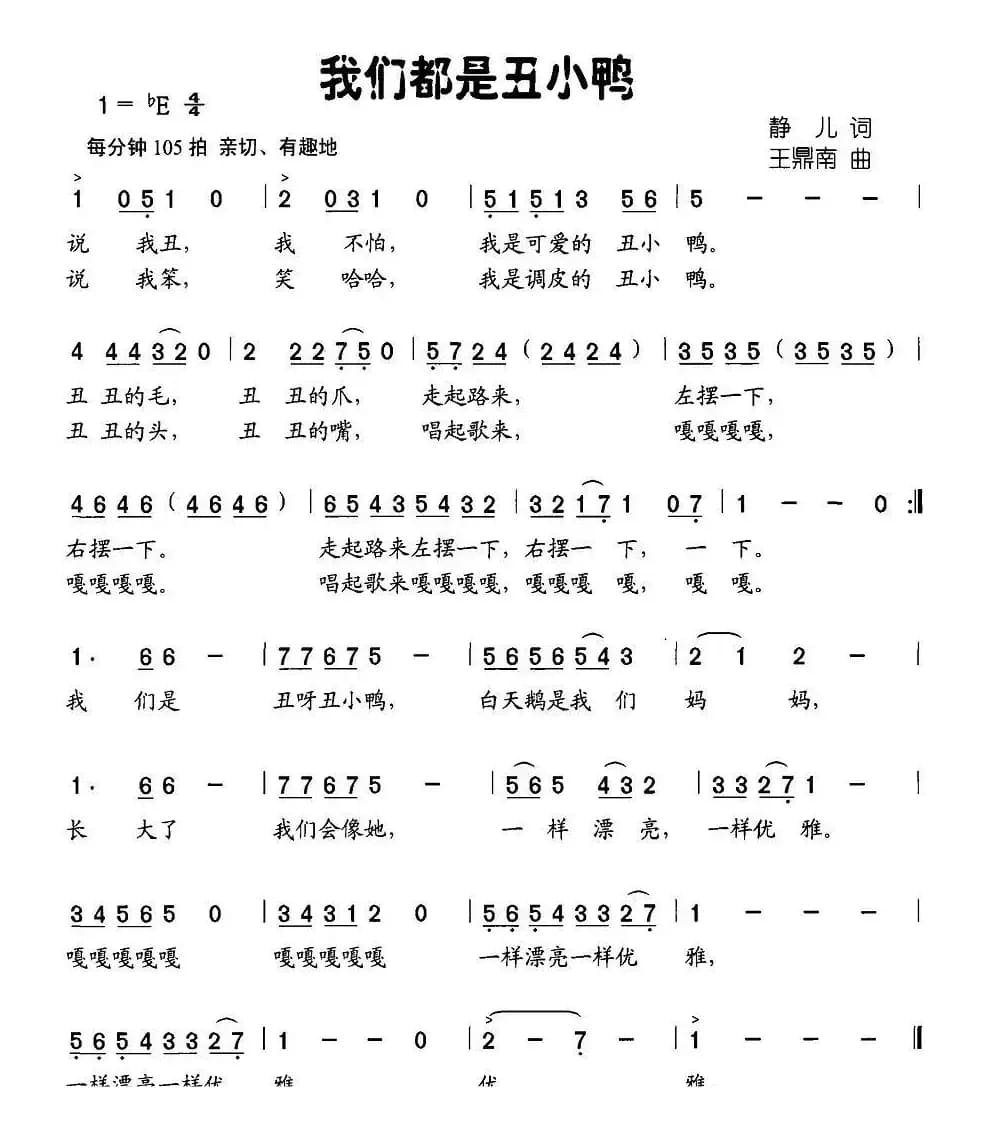 我们都是丑小鸭
1 = ♭E 4/4
静 儿 词
每分钟 105 拍 亲切、有趣地
王鼎南 曲
1 051 0 | 2 031 0 | 51513 56 | 5 - - - |
说 我丑, 我 不怕, 我是可爱的 丑小 鸭。
说 我笨, 笑 哈哈, 我是调皮的 丑小 鸭。
4 44320 | 2 22750 | 5724 (2424) | 3535 (3535) |
丑 丑的毛, 丑 丑的爪, 走起路来, 左摆一下,
丑 丑的头, 丑 丑的嘴, 唱起歌来, 嘎嘎嘎嘎,
4646 (4646) | 65435432 | 32171 07 | 1 - - 0 :‖
右摆一下。 走起路来左摆一下, 右摆一 下, 一 下。
嘎嘎嘎嘎。 唱起歌来嘎嘎嘎嘎, 嘎嘎嘎 嘎, 嘎 嘎。
1· 66 - | 77675 - | 5656543 | 2 1 2 - |
我 们是 丑呀丑小鸭, 白天鹅是我 们 妈 妈,
1· 66 - | 77675 - | 565 432 | 33271 - |
长 大了 我们会像她, 一 样 漂 亮, 一样优 雅。
34565 0 | 34312 0 | 56543327 | 1 - - - |
嘎嘎嘎嘎嘎 嘎嘎嘎嘎嘎 一样漂亮一样优 雅,
56543327 | 1 - - 0 | 2 - 7 - | 1 - - - ‖
一样漂亮一样优 雅 优 雅。